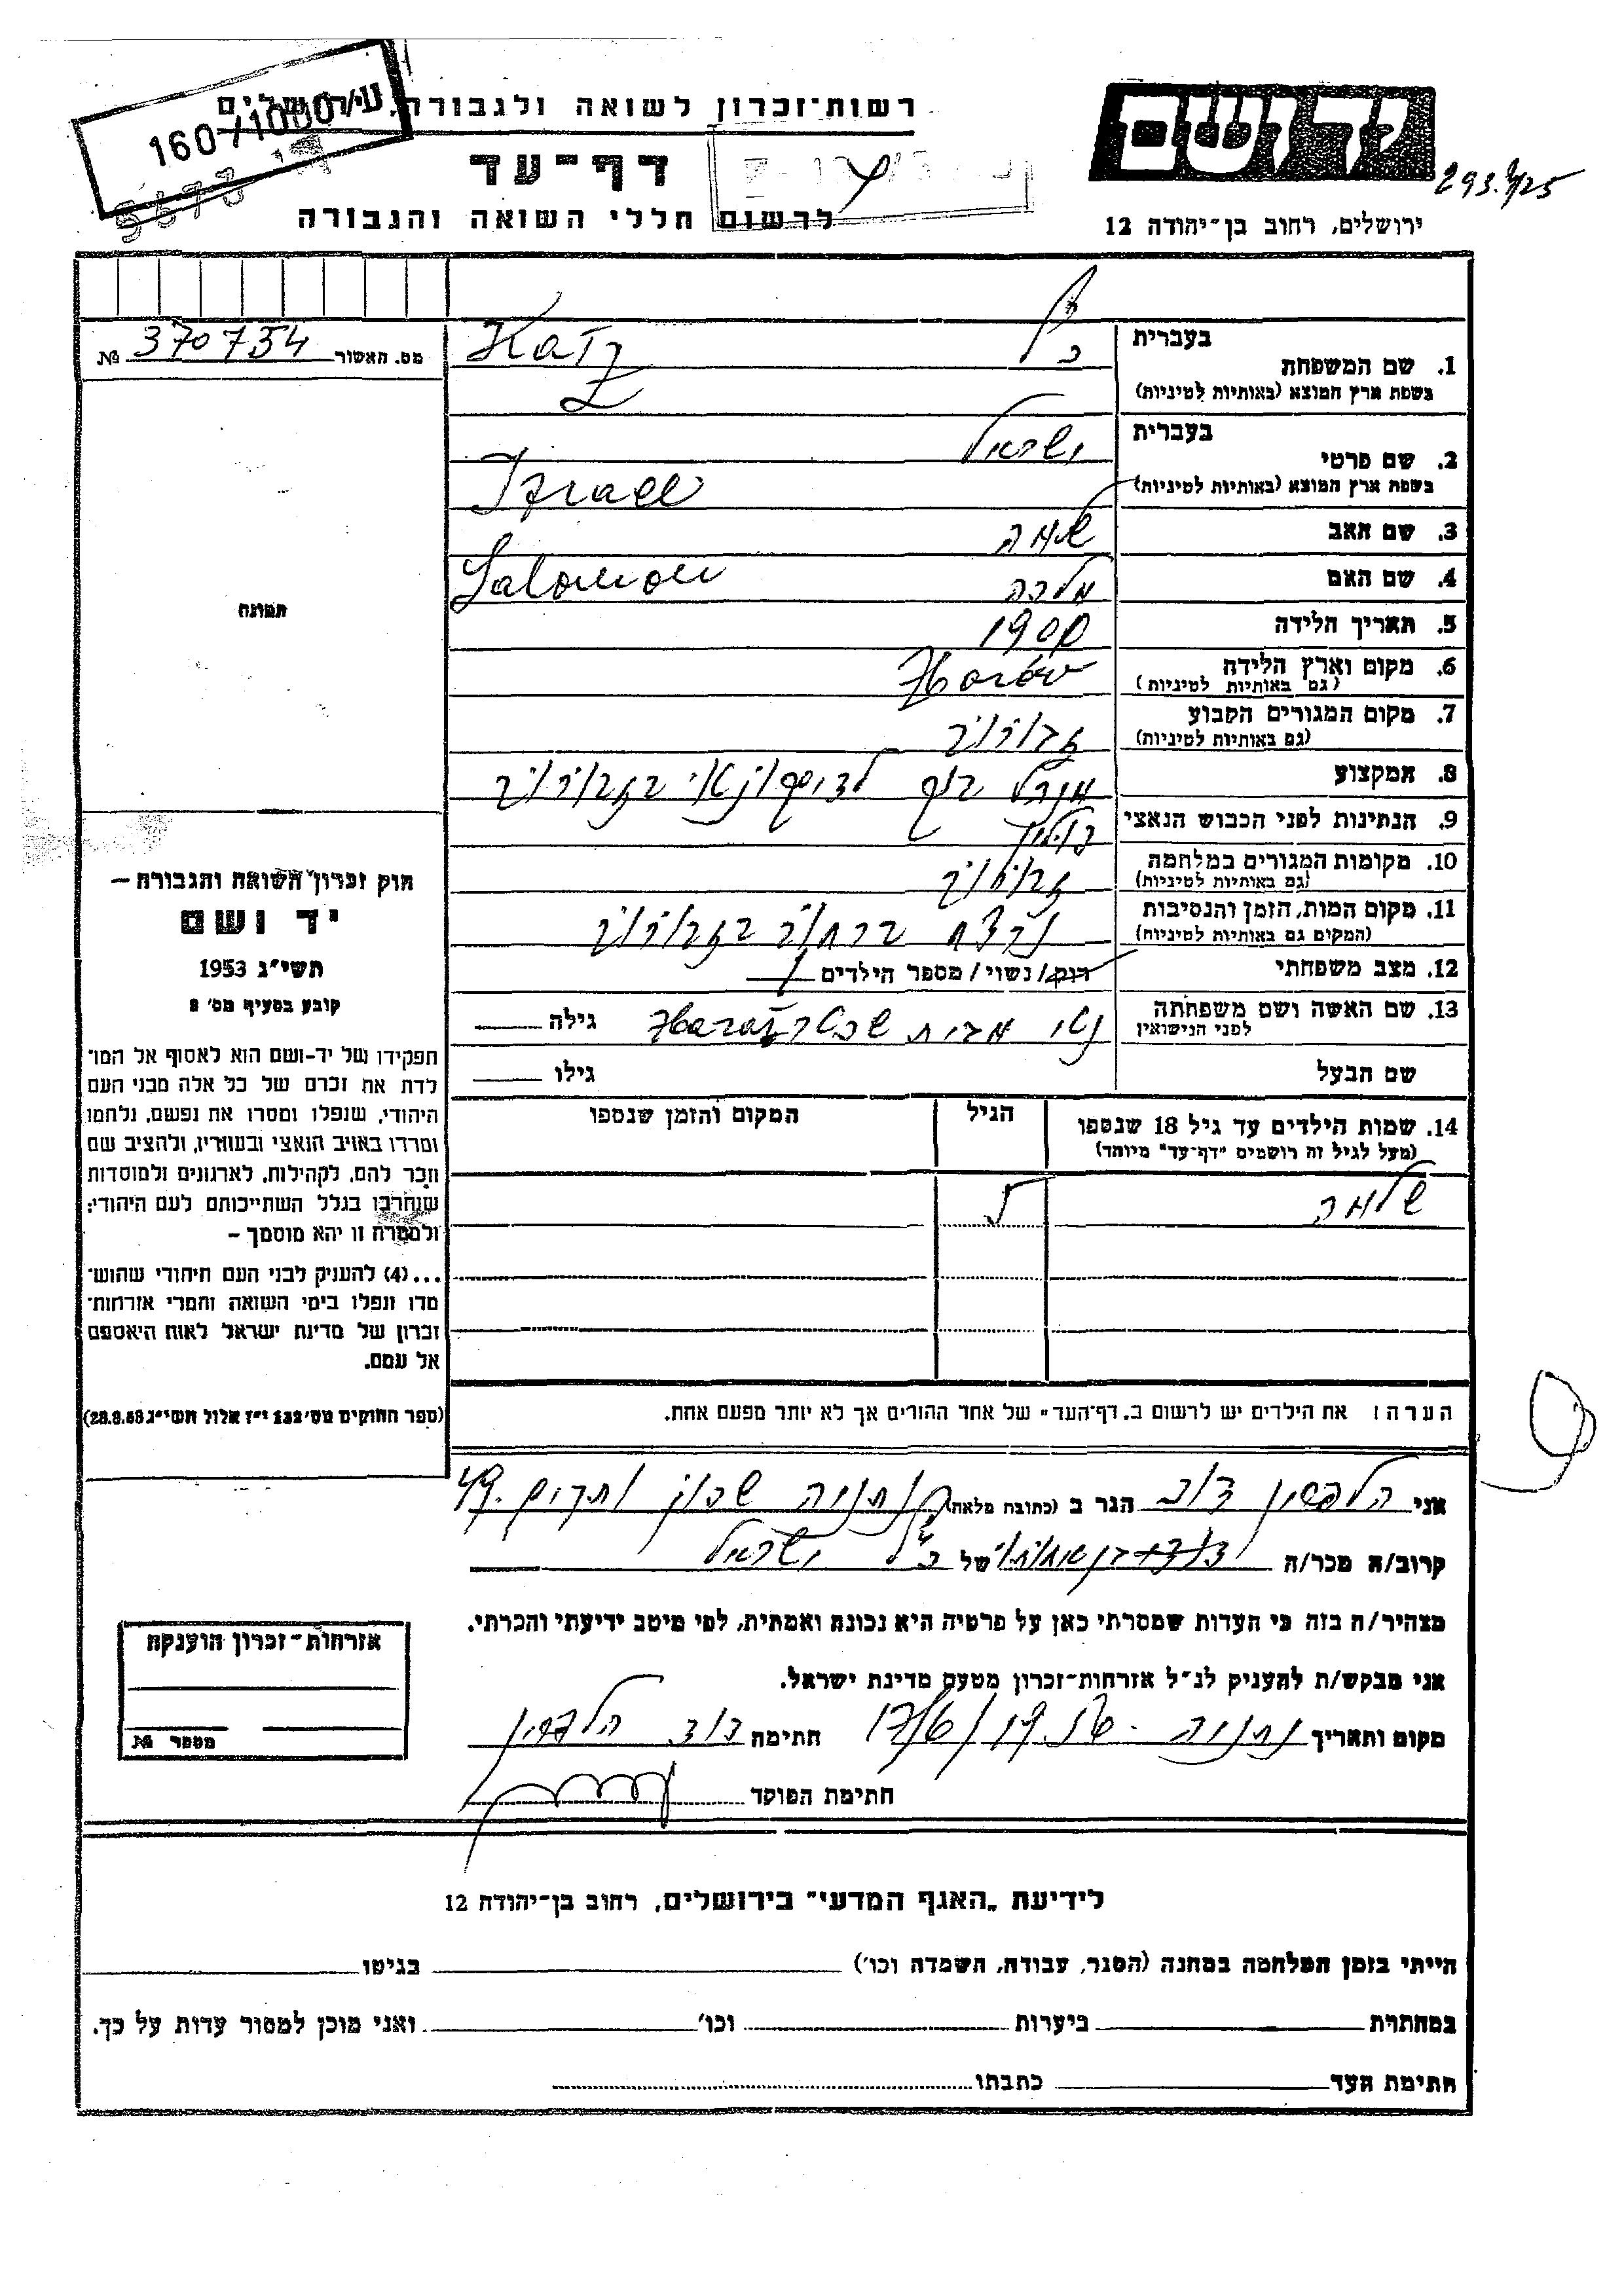 160/1000/ע
רשות־זכרון לשואה ולגבורה, ירושלים
יד ושם
דף־עד
293.4/25
לרשום חללי השואה והגבורה
ירושלים, רחוב בן־יהודה 12
מס. האשור 370754 №
בעברית
כץ
Katz
1. שם המשפחה
בשפת ארץ המוצא (באותיות לטיניות)
בעברית
ישראל
2. שם פרטי
בשפת ארץ המוצא (באותיות לטיניות)
Izrael
3. שם האב שלמה
Salomon
4. שם האם מלכה
5. תאריך הלידה 1900
6. מקום וארץ הלידה
(גם באותיות לטיניות)
Zborów
7. מקום המגורים הקבוע
(גם באותיות לטיניות)
זבורוב
8. המקצוע מנהל
9. הנתינות לפני הכבוש הנאצי פולין
10. מקומות המגורים במלחמה
(גם באותיות לטיניות)
זבורוב
11. מקום המות, הזמן והנסיבות
(המקום גם באותיות לטיניות)
נרצח ברחוב בזבורוב
12. מצב משפחתי רווק/נשוי/מספר הילדים 1
13. שם האשה ושם משפחתה
לפני הנישואין
מבית
גילה
שם הבעל
גילו
14. שמות הילדים עד גיל 18 שנספו
(מעל לגיל זה רושמים "דף־עד" מיוחד)
הגיל
המקום והזמן שנספו
שלמה
הערה: את הילדים יש לרשום ב„דף־העד" של אחד ההורים אך לא יותר מפעם אחת.
תמונה
חוק זכרון השואה והגבורה —
יד ושם
תשי"ג 1953
קובע בסעיף מס' 2
תפקידו של יד־ושם הוא לאסוף אל המו־
לדת את זכרם של כל אלה מבני העם
היהודי, שנפלו ומסרו את נפשם, נלחמו
ומרדו באויב הנאצי ובעוזריו, ולהציב שם
וזכר להם, לקהילות, לארגונים ולמוסדות
שנחרבו בגלל השתייכותם לעם היהודי;
ולמטרה זו יהא מוסמך —
...(4) להעניק לבני העם היהודי שהוש־
מדו ונפלו בימי השואה והמרי אזרחות־
זכרון של מדינת ישראל לאות היאספם
אל עמם.
(ספר החוקים מס' 132 י"ז אלול תשי"ג 28.8.53)
אני הלפרין דוב הגר ב (כתובת מלאה) נתניה שכון ותיקים 49
קרוב/ה מכר/ה של כץ ישראל
מצהיר/ה בזה כי העדות שמסרתי כאן על פרטיה היא נכונה ואמתית, לפי מיטב ידיעתי והכרתי.
אני מבקש/ת להעניק לנ"ל אזרחות־זכרון מטעם מדינת ישראל.
מקום ותאריך נתניה חתימה דוב הלפרין
חתימת הפוקד
אזרחות־זכרון הוענקה
מספר №
לידיעת „האגף המדעי" בירושלים, רחוב בן־יהודה 12
הייתי בזמן המלחמה במחנה (הסגר, עבודה, השמדה וכו') בגיטו
במחתרת ביערות וכו' ואני מוכן למסור עדות על כך.
חתימת העד כתבתו